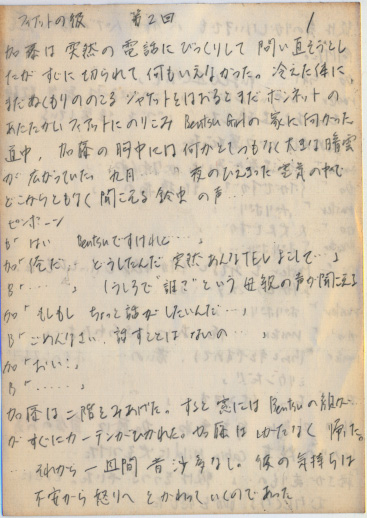 フィアットの彼 第2回 1
加藤は突然の電話にびっくりして問い直そうとし
たが すぐに切られて何もいえなかった。冷えた体に、
まだぬくもりののこるジャケットをはおるとまだボンネットの
あたたかいフィアットにのりこみ Bentsu Girlの家に向かった
道中、加藤の胸中には何かとてつもなく大きな暗雲
が広がっていた 九月 夜のひえきった空気の中で
どこからともなく聞こえる鈴虫の声…
ピンポーン
B「はい Bentsuですけれど…」
加「俺だ。 どうしたんだ 突然あんなTELよこして…」
B「……」 (うしろで"誰?"という母親の声が聞こえる
加「もしもし ちょっと話がしたいんだ…」
B「ごめんなさい、話すことはないの…」
加「おい!」
B「……」
加藤は二階をみあげた。すると窓にはBentsuの顔が
がすぐにカーテンがひかれた。加藤はしかたなく帰った。
…それから一週間音沙多なし。彼の気持ちは
不安から怒りへとかわっていくのであった